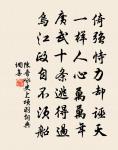 倚強恃力却誣天
一樣人心萬萬年
廣武十條逃得過
烏江政自不須船
陳普詠史上項羽